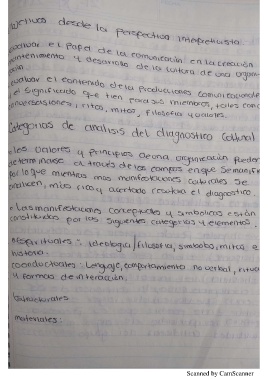 Objetivos desde la perspectiva interpretativista
evaluar el papel de la comunicación en la creación
mantenimiento y desarrollo de la cultura de una organi
evaluar el contenido de la producciones comunicacionale
el significado que tien para sus miembros, tales como
conversaciones, ritos, mitos, filosofia y valores.
Categorias de analisis del diagnostico cultural
•los valores y principios de una organización pueden
determinarse a través de los campos en que se manifi
por lo que mientras mas manifestaciones culturales se
analicen, más rico y acertado resultara el diagnostico
•Las manifestaciones conceptuales y simbolicas están
constituidas por las siguientes categorias y elementos
•Espirituales: ideologia/filosofia, simbolos, mitos e
historia.
•conductuales: Lenguaje, comportamiento no verbal, ritual
y formas de interacción.
Estructurales
materiales:
Scanned by CamScanner